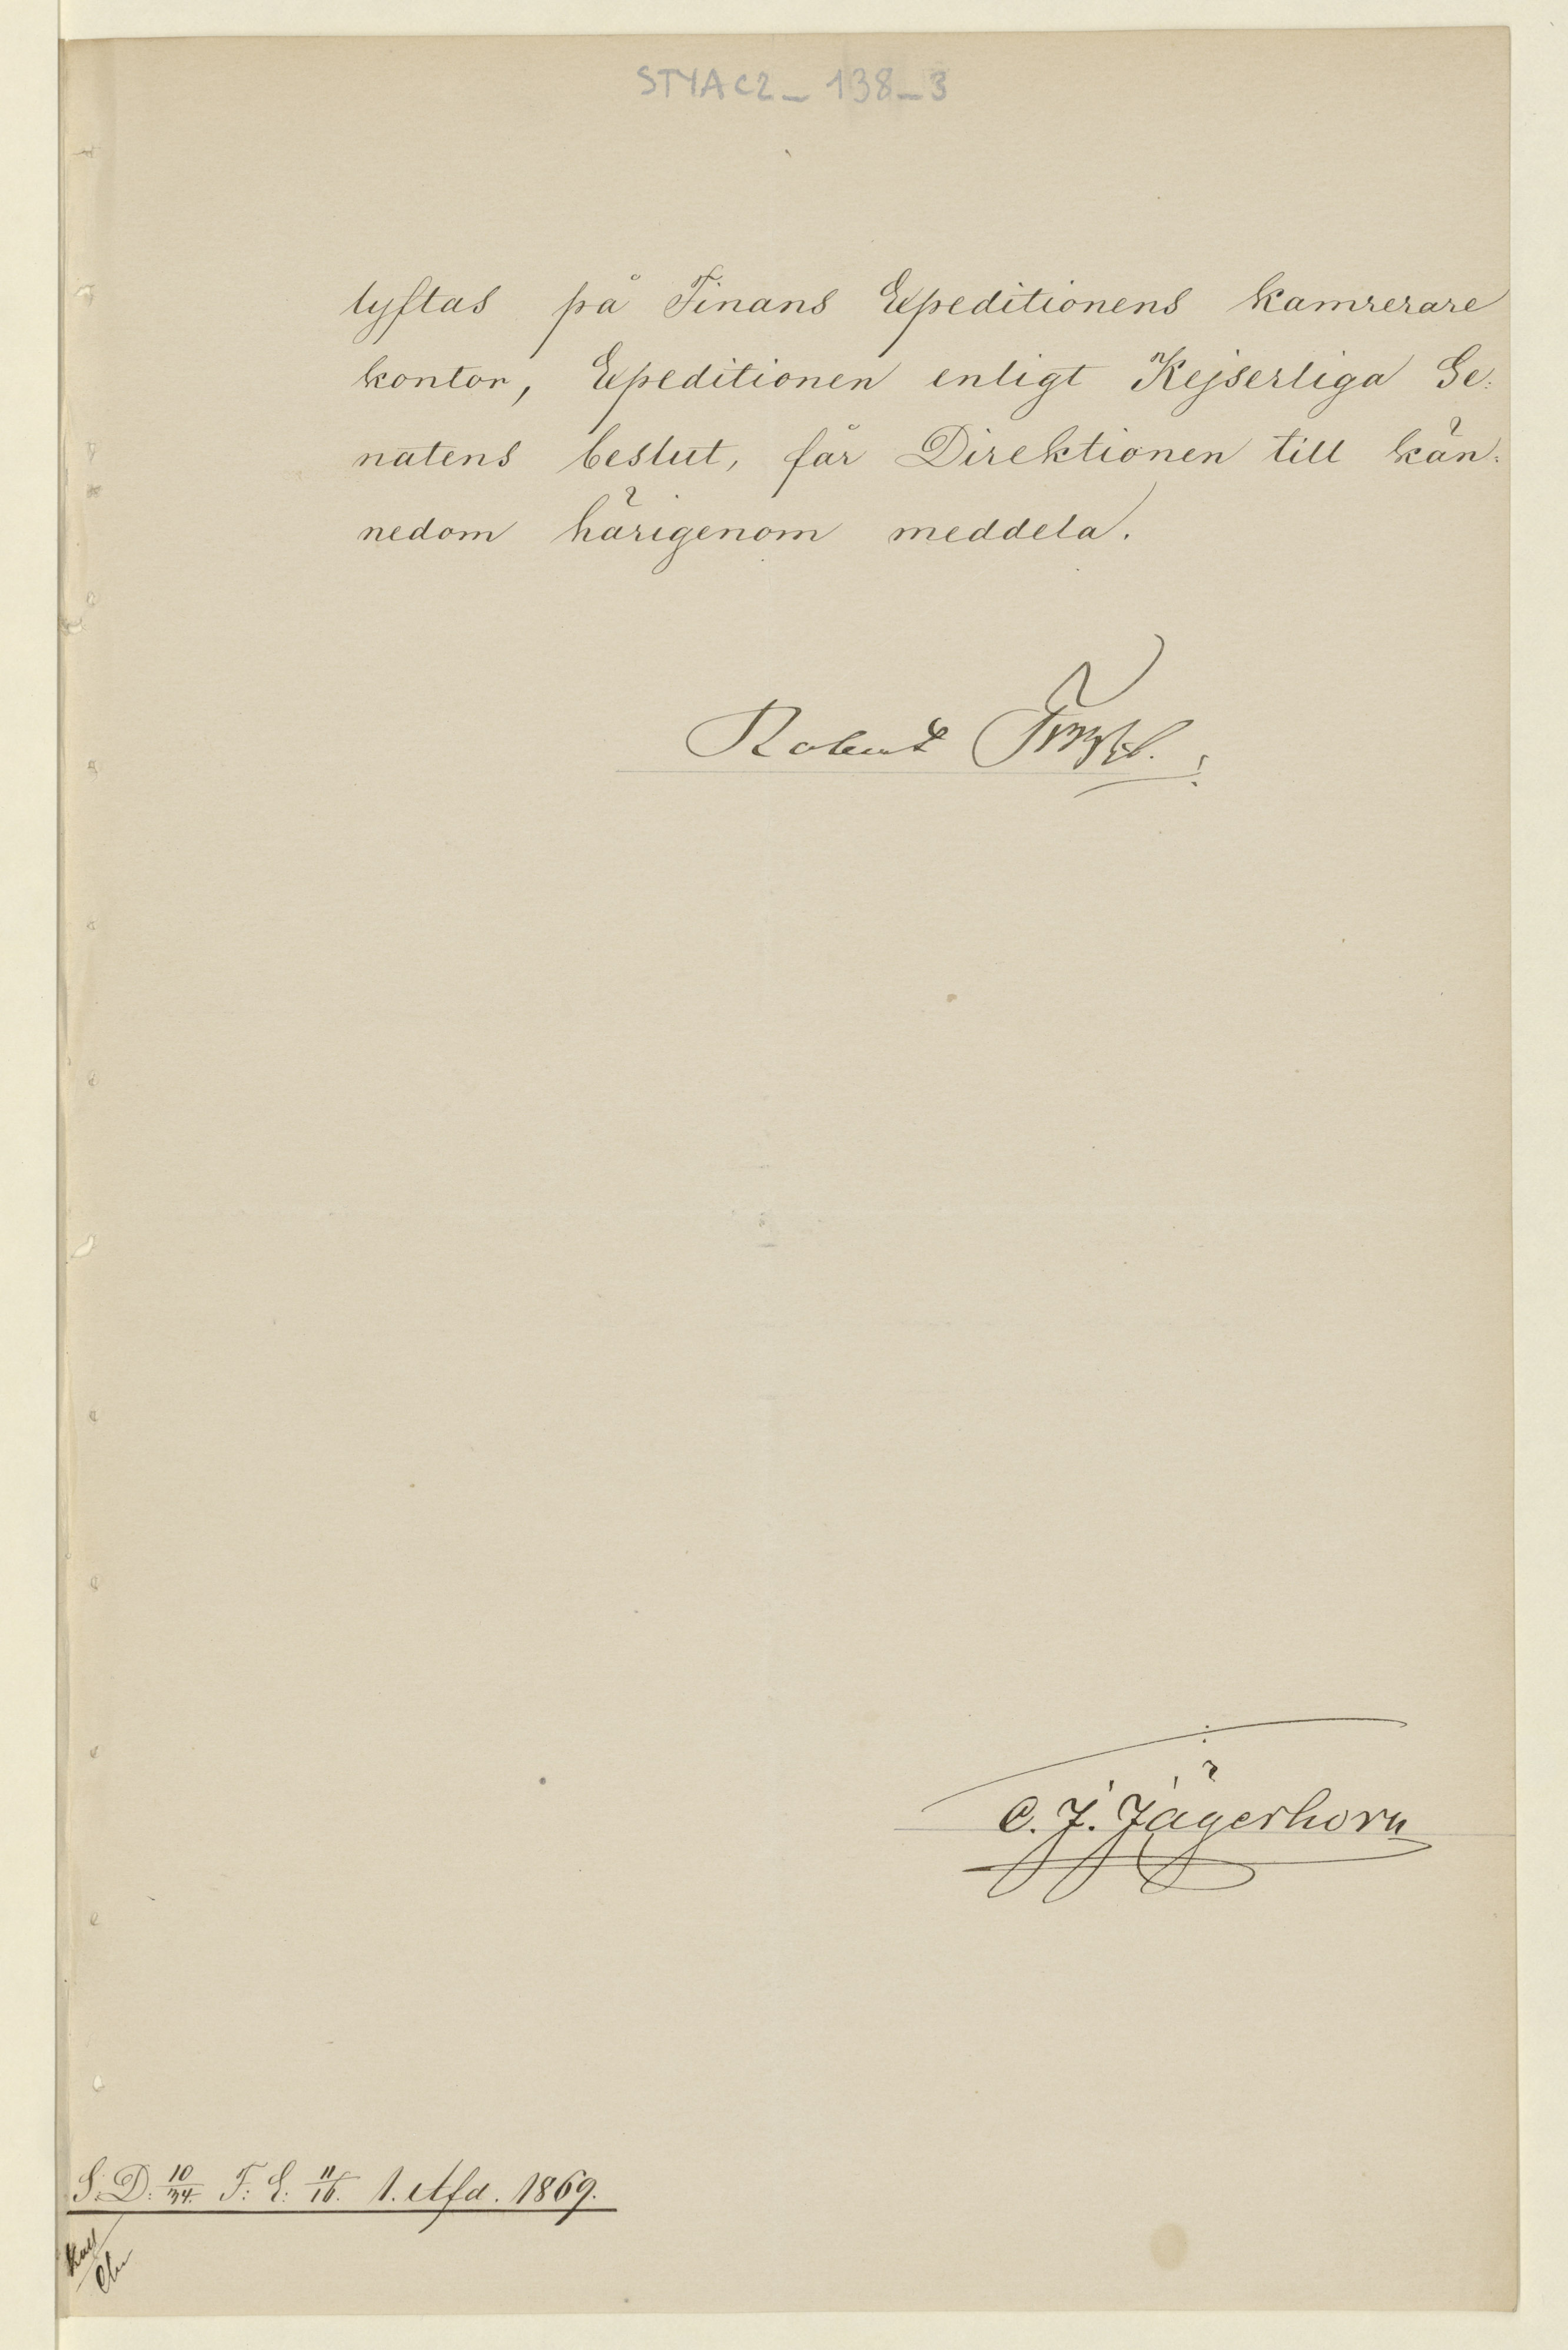 STYAC2_138_3
lyftas på Finans Expeditionens kamrerare
kontor, Expeditionen enligt Kejserliga Se:
natens beslut, får Direktionen till kän:
nedom härigenom meddela.
Robert
C. J. Jägerhorn
S: D: 10/34. F: E: 11/16. 1. Afd. 1869.